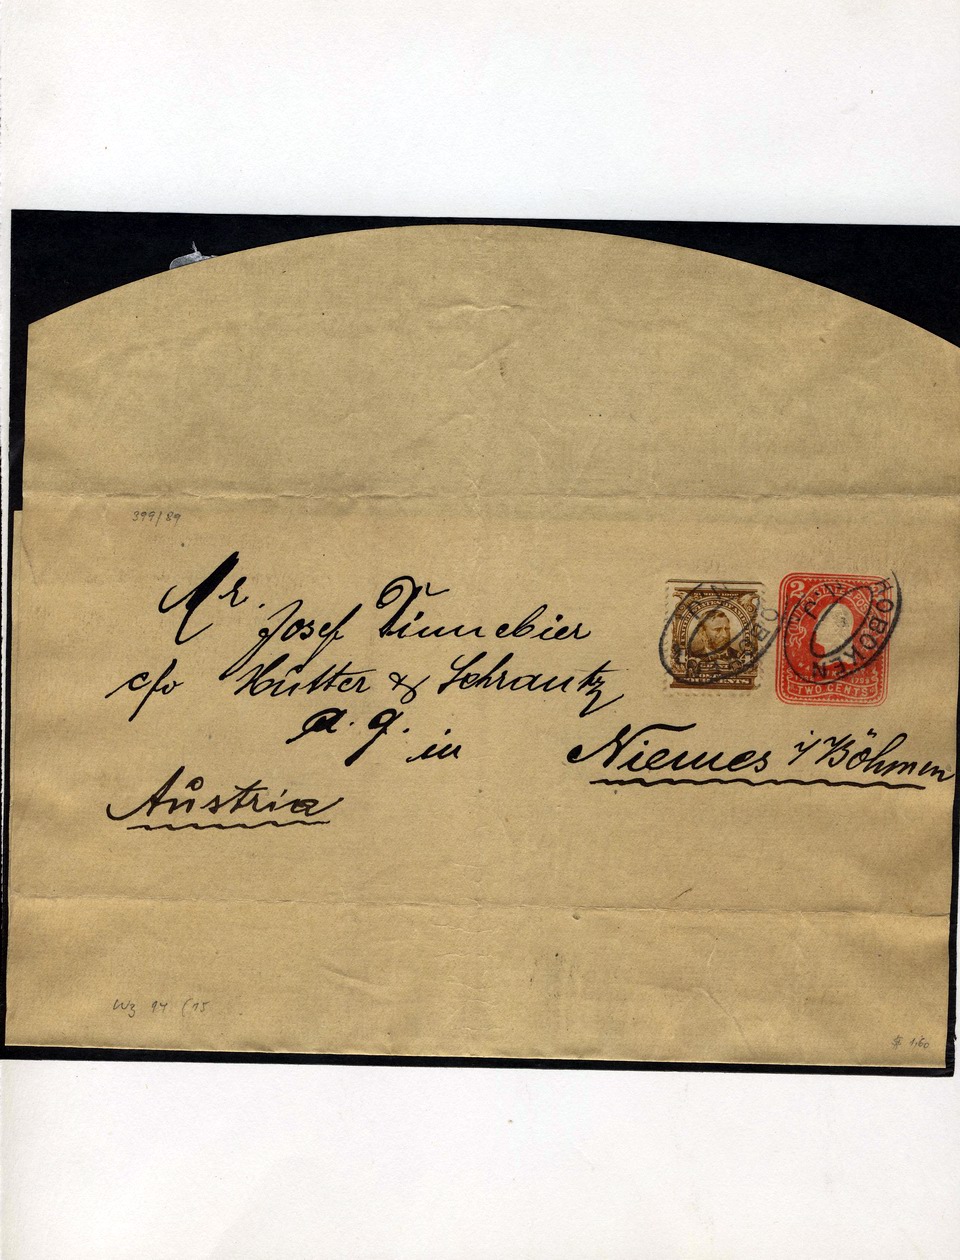 399/89
Mr.
Josef Tinnebier
c/o Hutter & Schrantz
a. g. in
Niemes i/Böhmen
Austria
HOBOKEN
HOBOKEN
N.J.
2
TWO CENTS
CENTS
Wz 94 (15
$ 1,60